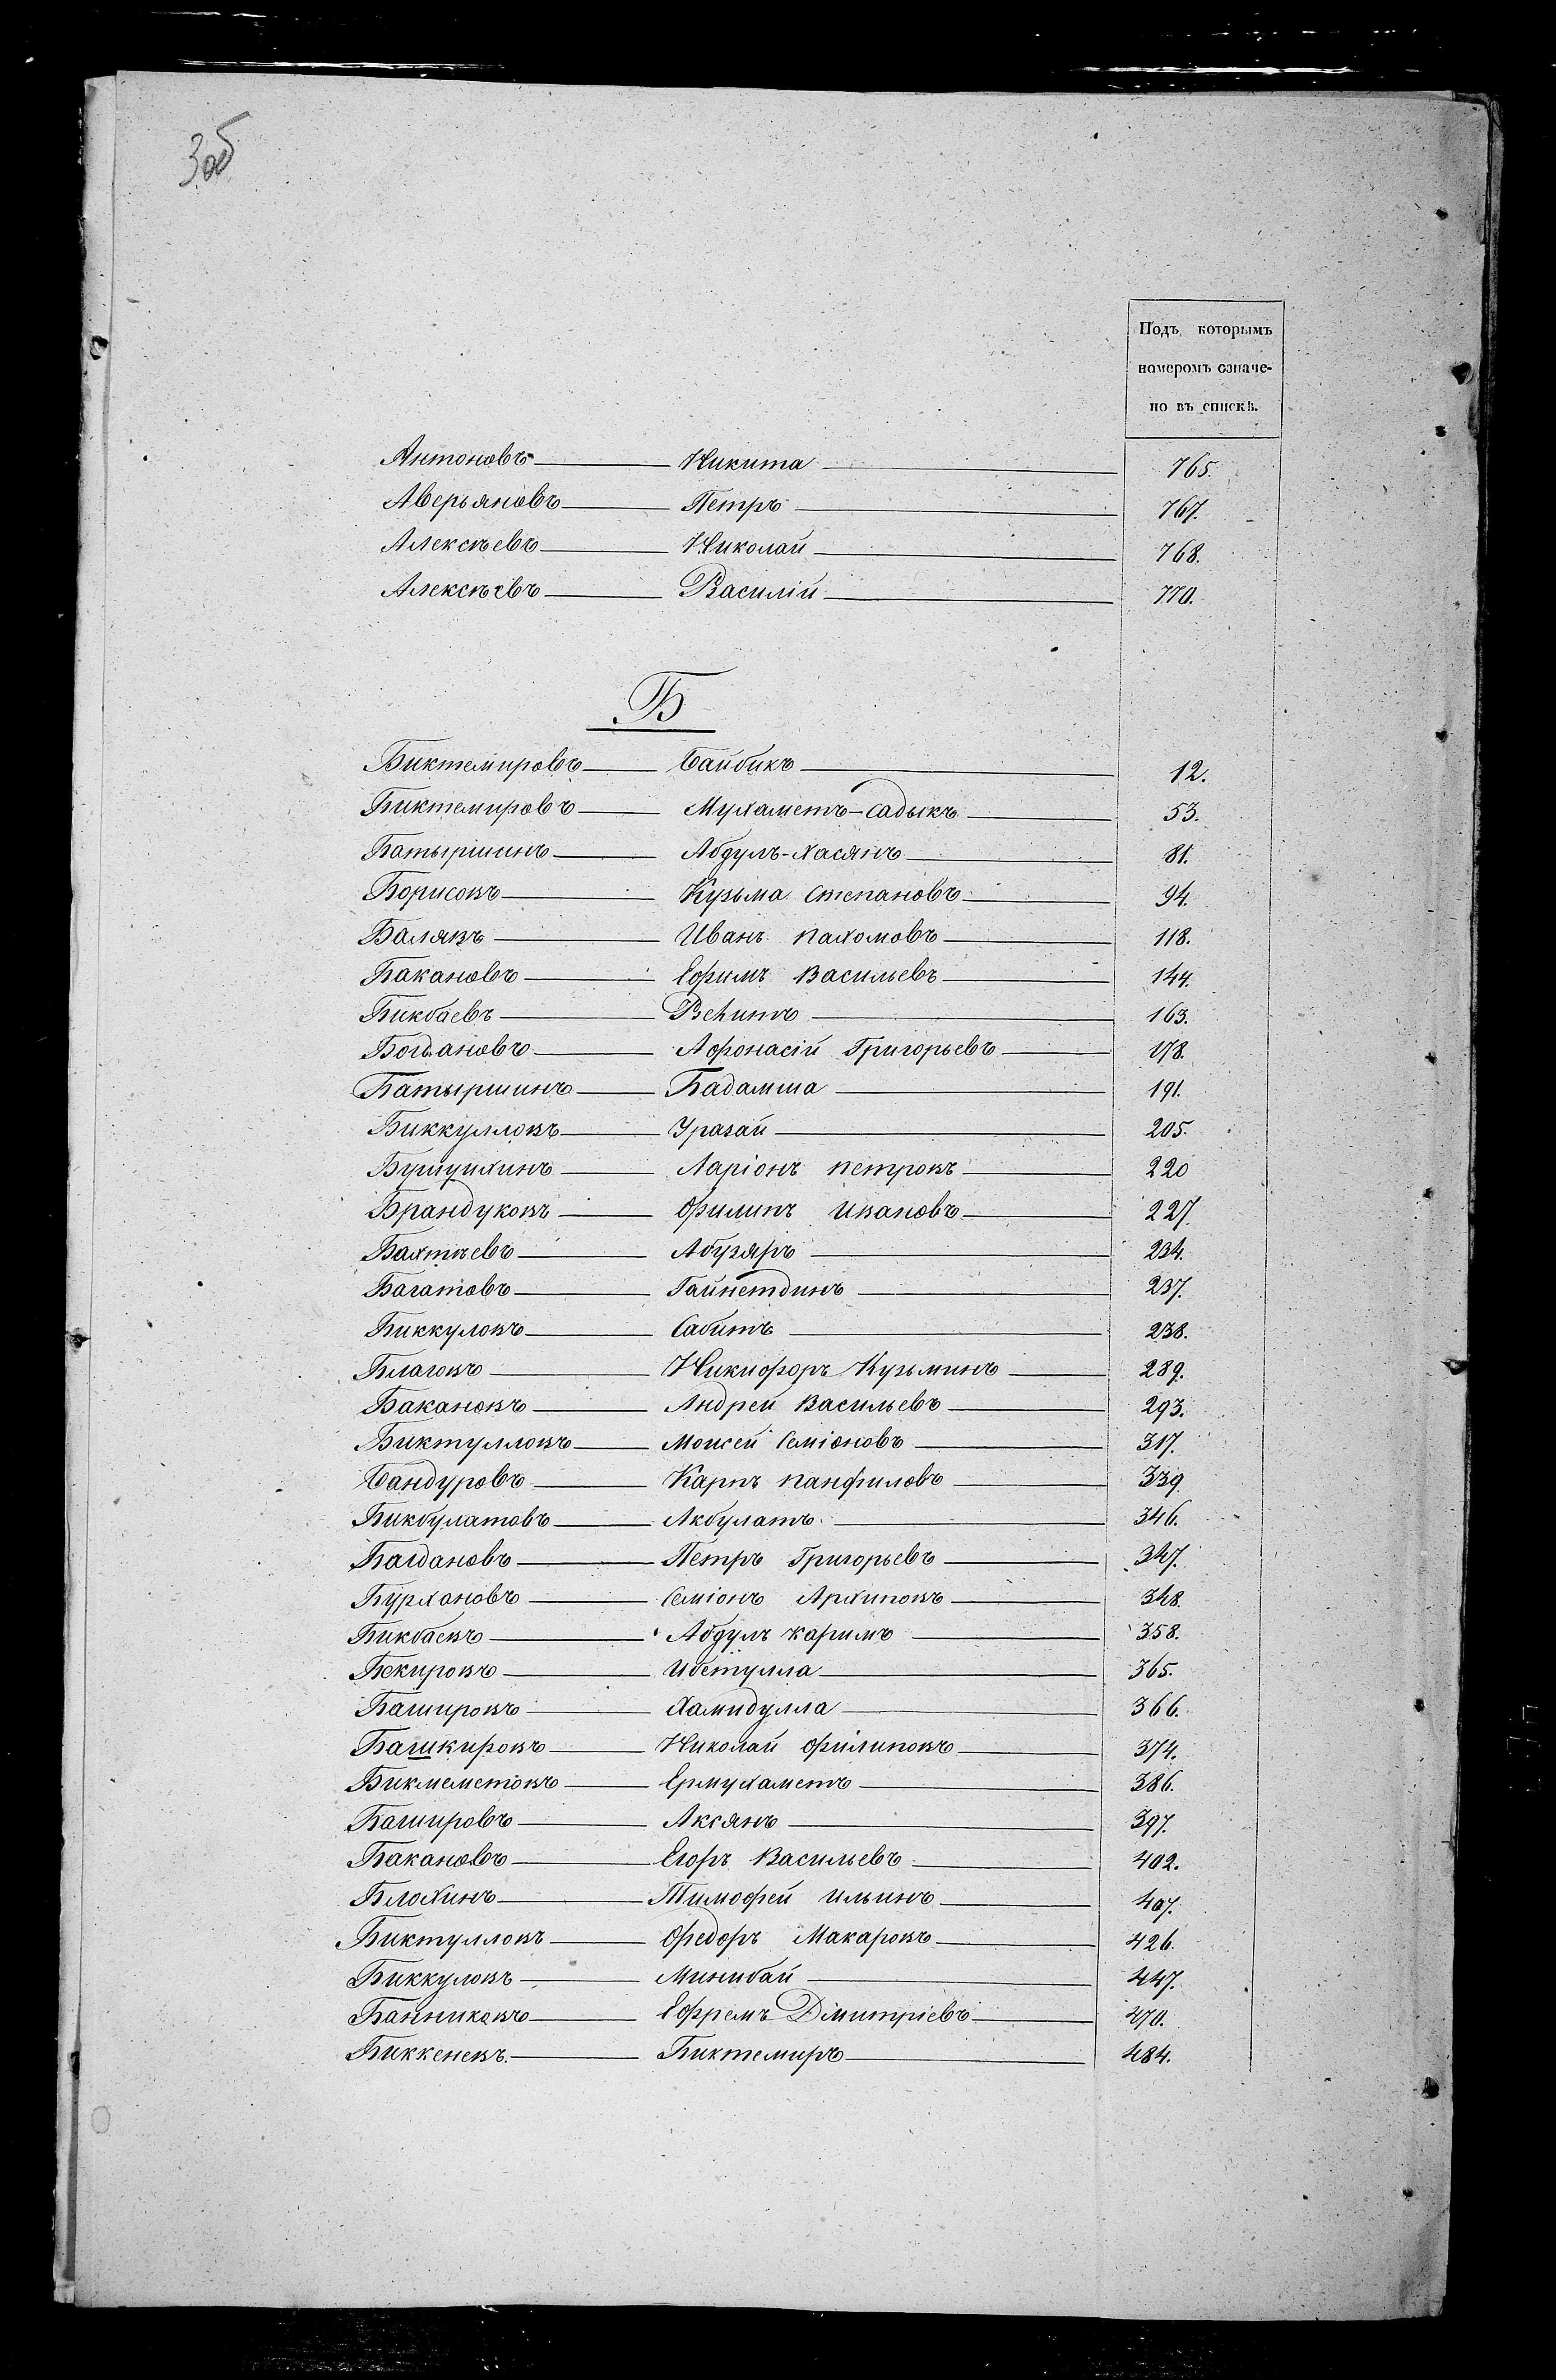 3об
Подъ которымъ
номеромъ означе-
но въ спискѣ.
Антоновъ Никита 765.
Аверьяновъ Петръ 767.
Алексѣевъ Николай 768.
Алексѣевъ Василій 770.
Б
Биктемировъ Байбикъ 12.
Биктемировъ Мухаметъ-Садыкъ 53.
Батыршинъ Абдулъ-Хасянъ 81.
Борисовъ Кузьма Степановъ 94.
Балявъ Иванъ Пахомовъ 118.
Бакановъ Ефимъ Васильевъ 144.
Бикбаевъ 163.
Богдановъ Афонасій Григорьевъ 178.
Батыршинъ Бадамша 191.
Биккулловъ Уразай 205.
Ларіонъ Петровъ 220
Брандуковъ Филипъ Ивановъ 227.
Бахтѣевъ Абузяръ 234.
Багатовъ Гайнетдинъ 237.
Биккуловъ Сабитъ 238.
Благовъ Никифоръ Кузьминъ 289.
Бакановъ Андрей Васильевъ 293.
Биктулловъ Моисей Семіоновъ 317.
Бандуровъ Карпъ Панфиловъ 339.
Бикбулатовъ Акбулатъ 346.
Багдановъ Петръ Григорьевъ 347.
Бурхановъ Семіонъ Архиповъ 348.
Бикбаевъ Абдулъ Каримъ 358.
Бекировъ Ибетулла 365.
Башировъ Хамидулла 366.
Башкировъ Николай Филиповъ 374.
Бикмеметовъ Ермухаметъ 386.
Башировъ Аксянъ 397.
Бакановъ Егоръ Васильевъ 402.
Блохинъ Тимофей Ильинъ 407.
Биктулловъ Федоръ Макаровъ 426.
Биккуловъ Минибай 447.
Банниковъ Ефремъ Димитріевъ 470.
Биккеневъ. Биктемиръ 484.